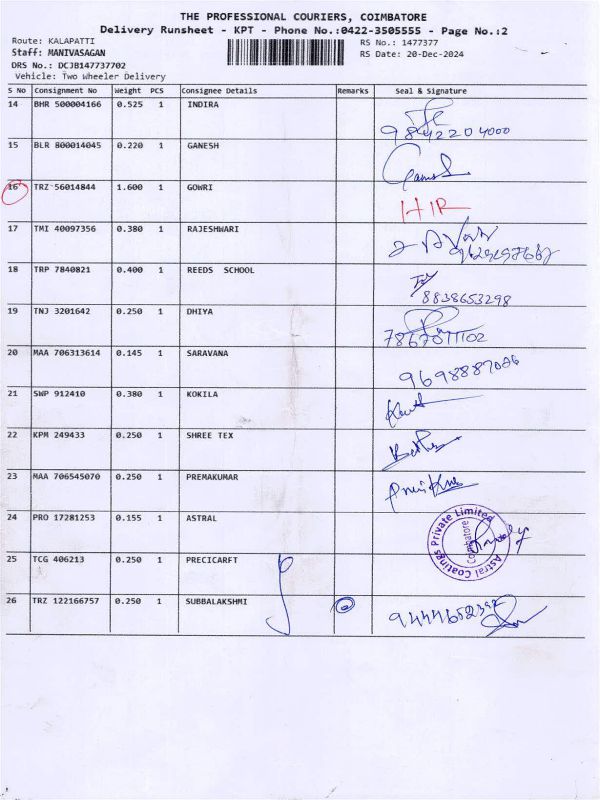 THE PROFESSIONAL COURIERS, COIMBATORE
Delivery Runsheet - KPT - Phone No.:0422-3505555 - Page No.:2
Route: KALAPATTI RS No.: 1477377
Staff: MANIVASAGAN RS Date: 20-Dec-2024
DRS No.: DCJB147737702
Vehicle: Two Wheeler Delivery
S No Consignment No Weight PCS Consignee Details Remarks Seal & Signature
14 BHR 500004166 0.525 1 INDIRA
9842204000
15 BLR 800014045 0.220 1 GANESH
16 TRZ 56014844 1.600 1 GOWRI
17 TMI 40097356 0.380 1 RAJESHWARI
18 TRP 7840821 0.400 1 REEDS SCHOOL
8838653298
19 TNJ 3201642 0.250 1 DHIYA
20 MAA 706313614 0.145 1 SARAVANA
21 SWP 912410 0.380 1 KOKILA
22 KPM 249433 0.250 1 SHREE TEX
23 MAA 706545070 0.250 1 PREMAKUMAR
24 PRO 17281253 0.155 1 ASTRAL
Astral Coatings Private Limited
Coimbatore
25 TCG 406213 0.250 1 PRECICARFT
26 TRZ 122166757 0.250 1 SUBBALAKSHMI